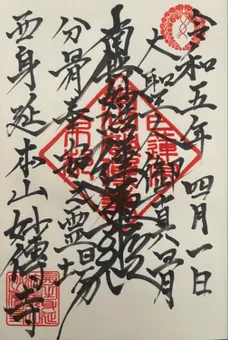 令和五年四月一日
大聖人御真骨
南無妙法蓮華経
分骨奉 之霊場
西身延本山妙傳寺